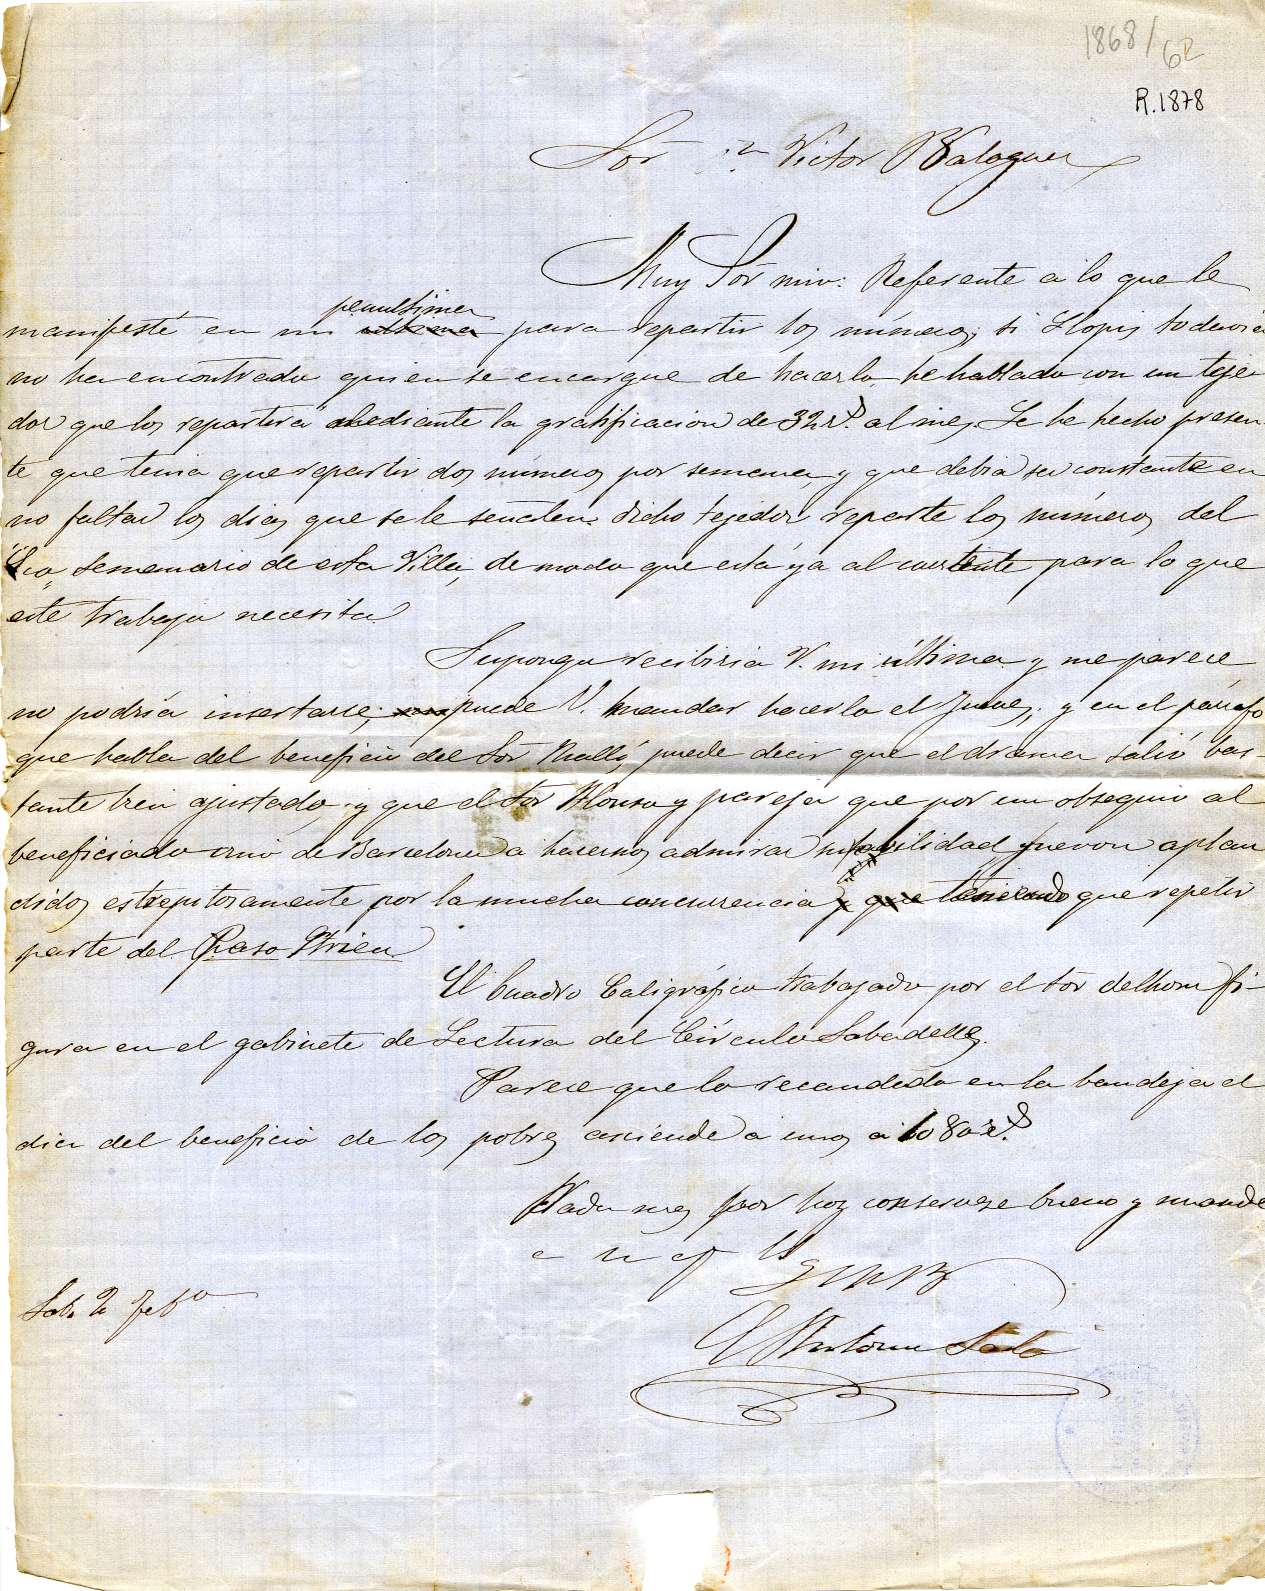 1868/62
R.1878
Sor Dn Victor Balaguer
Muy Sor mio: Referente a lo que le
penultima
manifesté en mi ultima para repartir los números, si Llopis todavia
no ha encontrado quien se encargue de hacerlo he hablado con un teje
dor que los repartirá mediante la gratificacion de 32 rs. al mes. Le he hecho presen
te que tenia que repartir dos números por semana y que debia ser constante en
no faltar los dias que se le señalen. Dicho tejedor reparte los números del
Eco Semanario de esta Villa, de modo que está ya al corriente para lo que
este trabajo necesita.
Supongo recibiria V. mi última y me parece
no podria insertarse, puede V. mandar hacerlo el Jueves, y en el párrafo
que habla del beneficio del Sor puede decir que el drama salió bas-
tante bien ajustado, y que el Sor Alonso y pareja que por un obsequio al
beneficiado vino de Barcelona a hacernos admirar su habilidad fueron aplau
didos estrepitosamente por la mucha concurrencia y que teniendo que repetir
parte del Paso
El Cuadro Caligráfico trabajado por el Sor delhom fi-
gura en el gabinete de Lectura del Círculo Sabadellés.
Parece que lo recaudado en la bandeja el
dia del beneficio de los pobres asciende a unos a 1080 rs.
Nada mas por hoy conservese bueno y mande
a su af S S
Q B S M
Antonio
Sab. 2 Febo